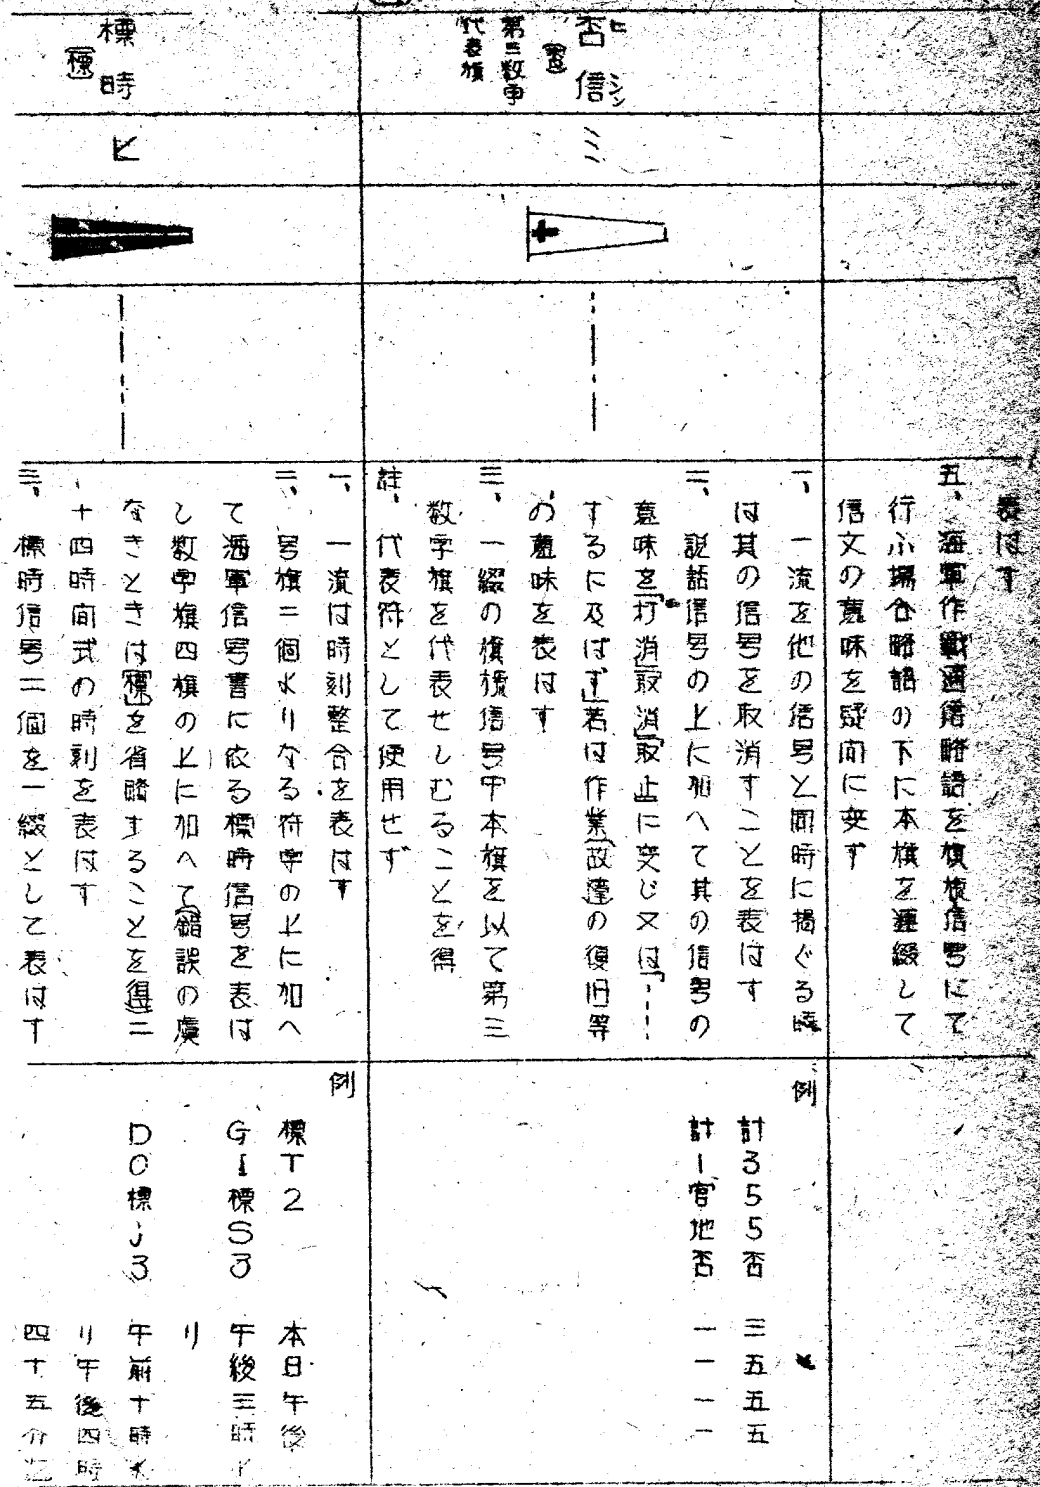 表はす
五、海軍作戦通信略語を旗旒信号にて
行ふ場合略語の下に本旗を連綴して
信文の意味を疑問に変ず
否信
ヒシン
(否)
第三数字
代表旗
ミ
一、一流を他の信号と同時に掲ぐる時
は其の信号を取消すことを表はす
二、説話信号の上に加へて其の信号の
意味を「打消」「取消」「取止」に変じ又は「、、、
するに及ばず」若は作業「故達」の復旧等
の意味を表はす
三、一綴の旗旒信号中本旗を以て第三
数字旗を代表せしむることを得
註、代表符として使用せず
例
計355否 三五五五
計1官地否 一一一一
標時
(標)
ヒ
一、一流は時刻整合を表はす
二、号旗二個よりなる符字の上に加へ
て海軍信号書に依る標時信号を表は
し数字旗四旗の上に加へて(錯誤の虞
なきときは(標)を省略することを得)二
十四時間式の時刻を表はす
三、標時信号二個を一綴として表はす
例
標T2 本日午後
G1標S3 午後三時
り
DO標J3 午前十時
り午後四時
四十五分